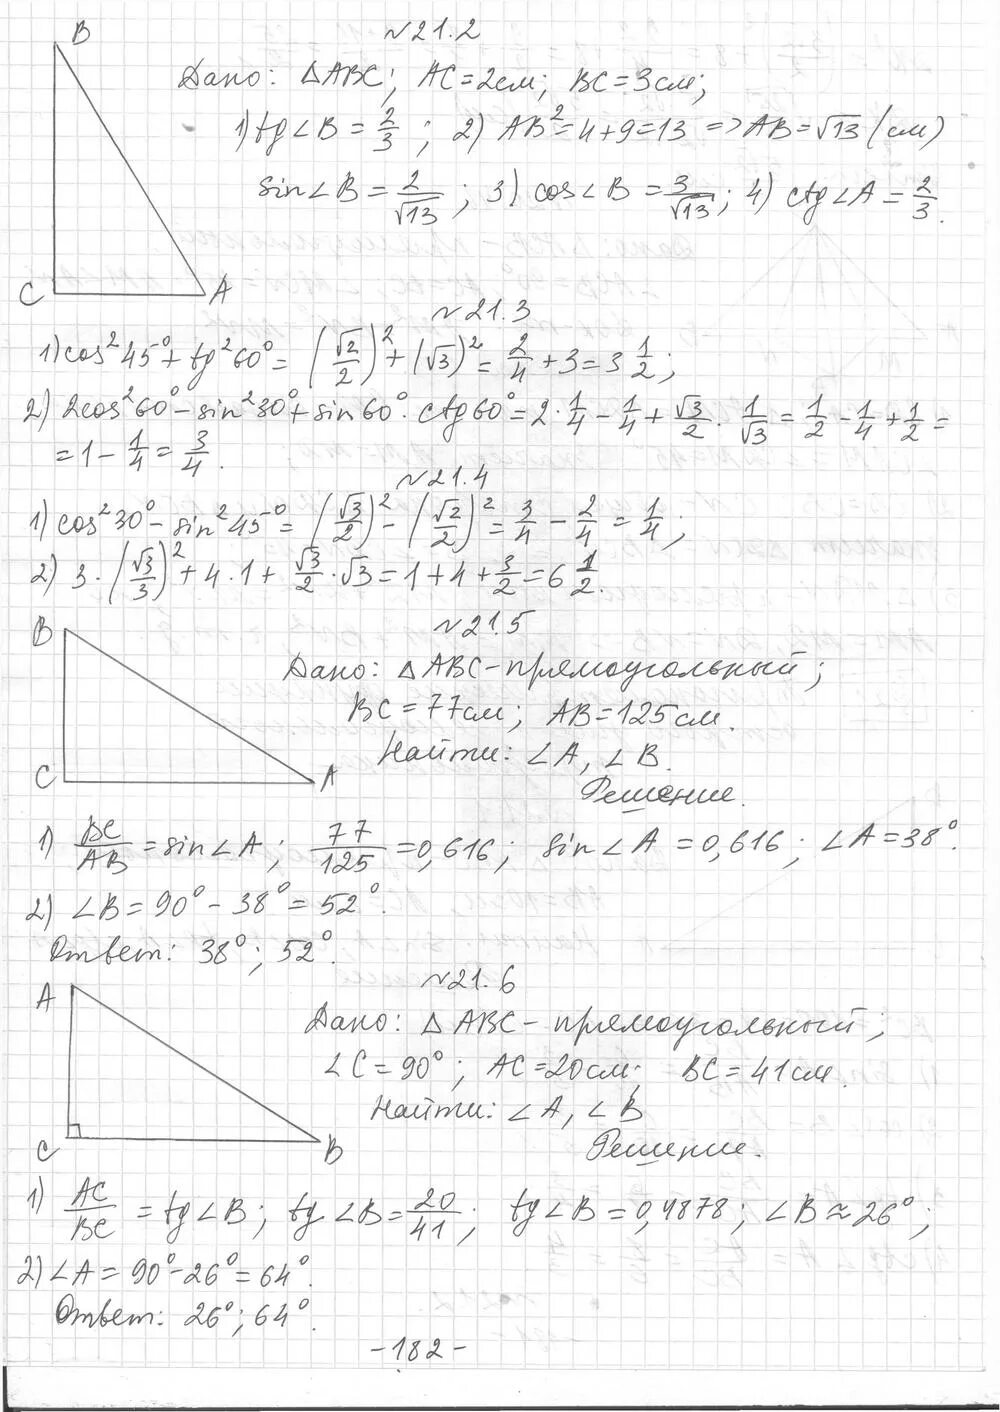 B
C
A
№21.2
Дано: △ABC; AC=2см; BC=3см;
1) tg∠B = 2/3; 2) AB²=4+9=13 => AB=√13 (см)
sin∠B = 2/√13; 3) cos∠B = 3/√13; 4) ctg∠A = 2/3.
№21.3
1) cos²45°+tg²60°= (√2/2)²+(√3)²= 2/4+3=3 1/2;
2) 2cos²60°-sin²30°+sin60°·ctg60°=2·1/4-1/4+√3/2·1/√3=1/2-1/4+1/2=
=1-1/4=3/4.
№21.4
1) cos²30°-sin²45°=(√3/2)²-(√2/2)²=3/4-2/4=1/4;
2) 3·(√3/3)²+4·1+√3/2·√3=1+4+3/2=6 1/2.
B
C
A
№21.5
Дано: △ABC-прямоугольный;
BC=77см; AB=125см.
Найти: ∠A, ∠B.
Решение.
1) BC/AB=sin∠A; 77/125=0,616; sin∠A=0,616; ∠A=38°.
2) ∠B=90°-38°=52°.
Ответ: 38°; 52°.
A
C
B
№21.6
Дано: △ABC-прямоугольный;
∠C=90°; AC=20см; BC=41см.
Найти: ∠A, ∠B
Решение.
1) AC/BC=tg∠B; tg∠B=20/41; tg∠B=0,4878; ∠B≈26°;
2) ∠A=90°-26°=64°.
Ответ: 26°; 64°.
-182-